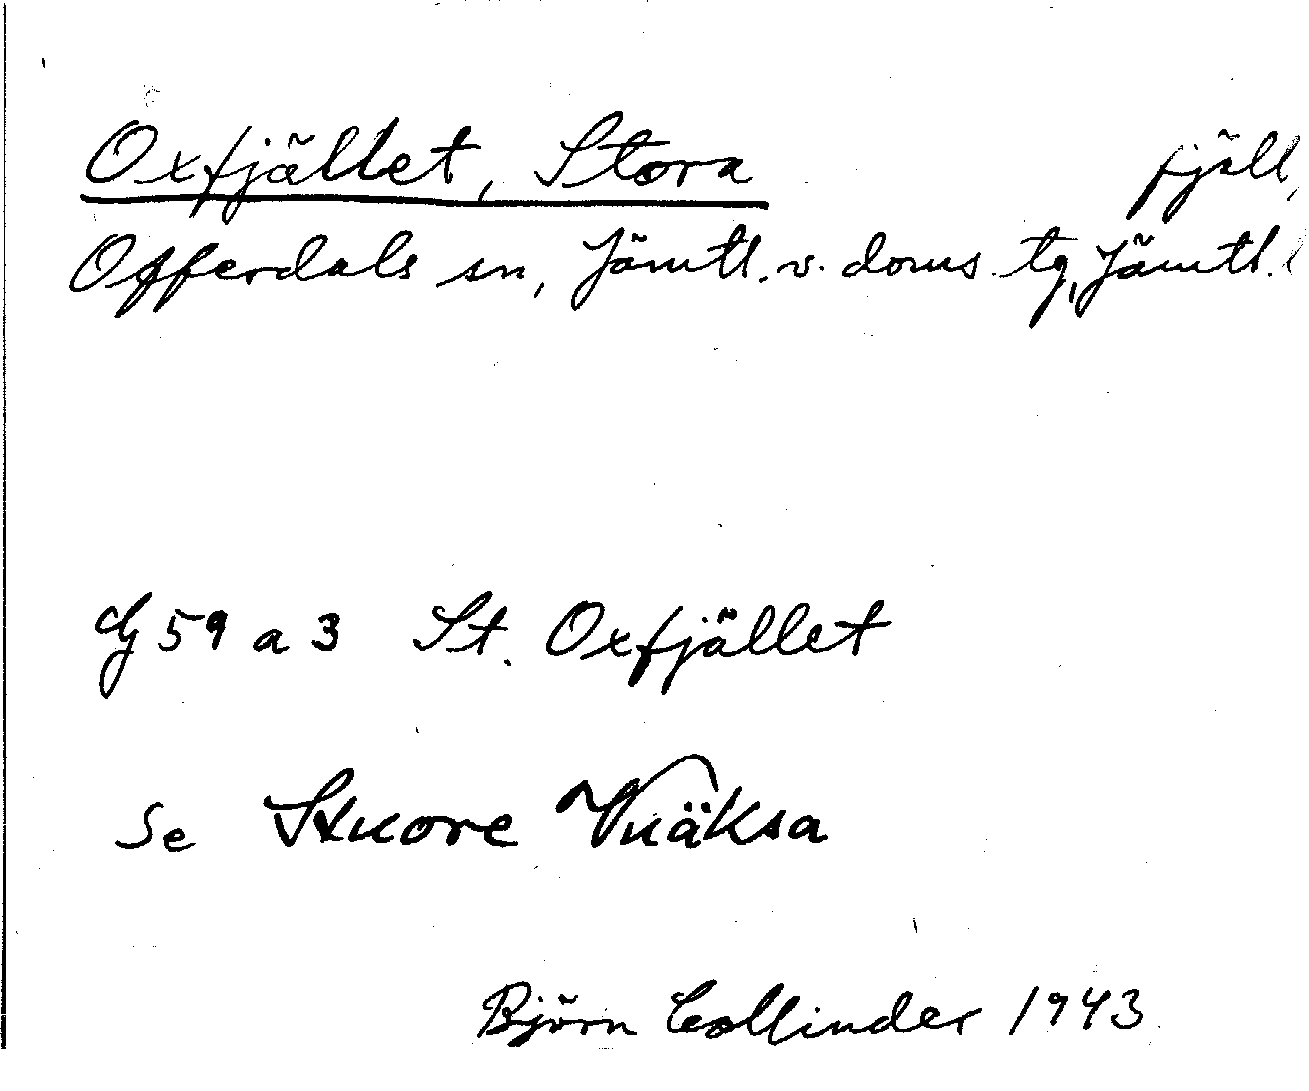 Oxfjället, Stora fjäll,
Offerdals sn, Jämtl. v. doms. tg, Jämtl. l
G 59 a 3 St. Oxfjället
Se Stuore Vuäksa
Björn Collinder 1943